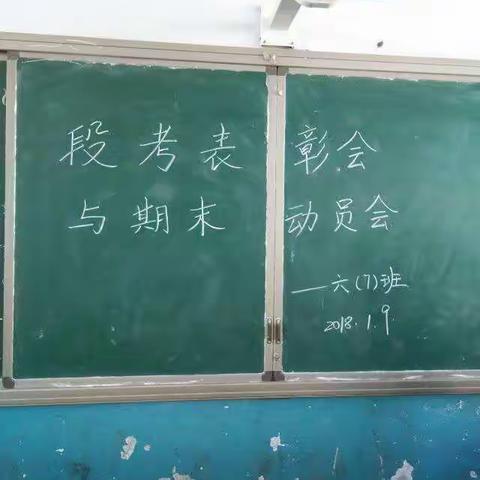 段考表彰会
与期末动员会
——六(7)班
2018.1.9.